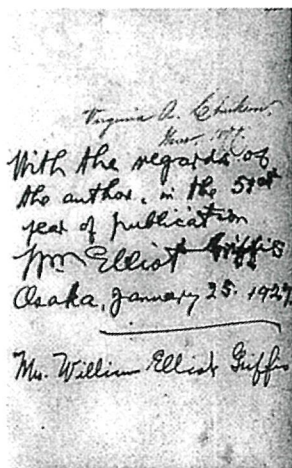 Virginia A.
With the regards of
the author, in the 51st
year of publication
Wm Elliot Griffis
Osaka, January 25. 1927
Mrs. William Elliot Griffis